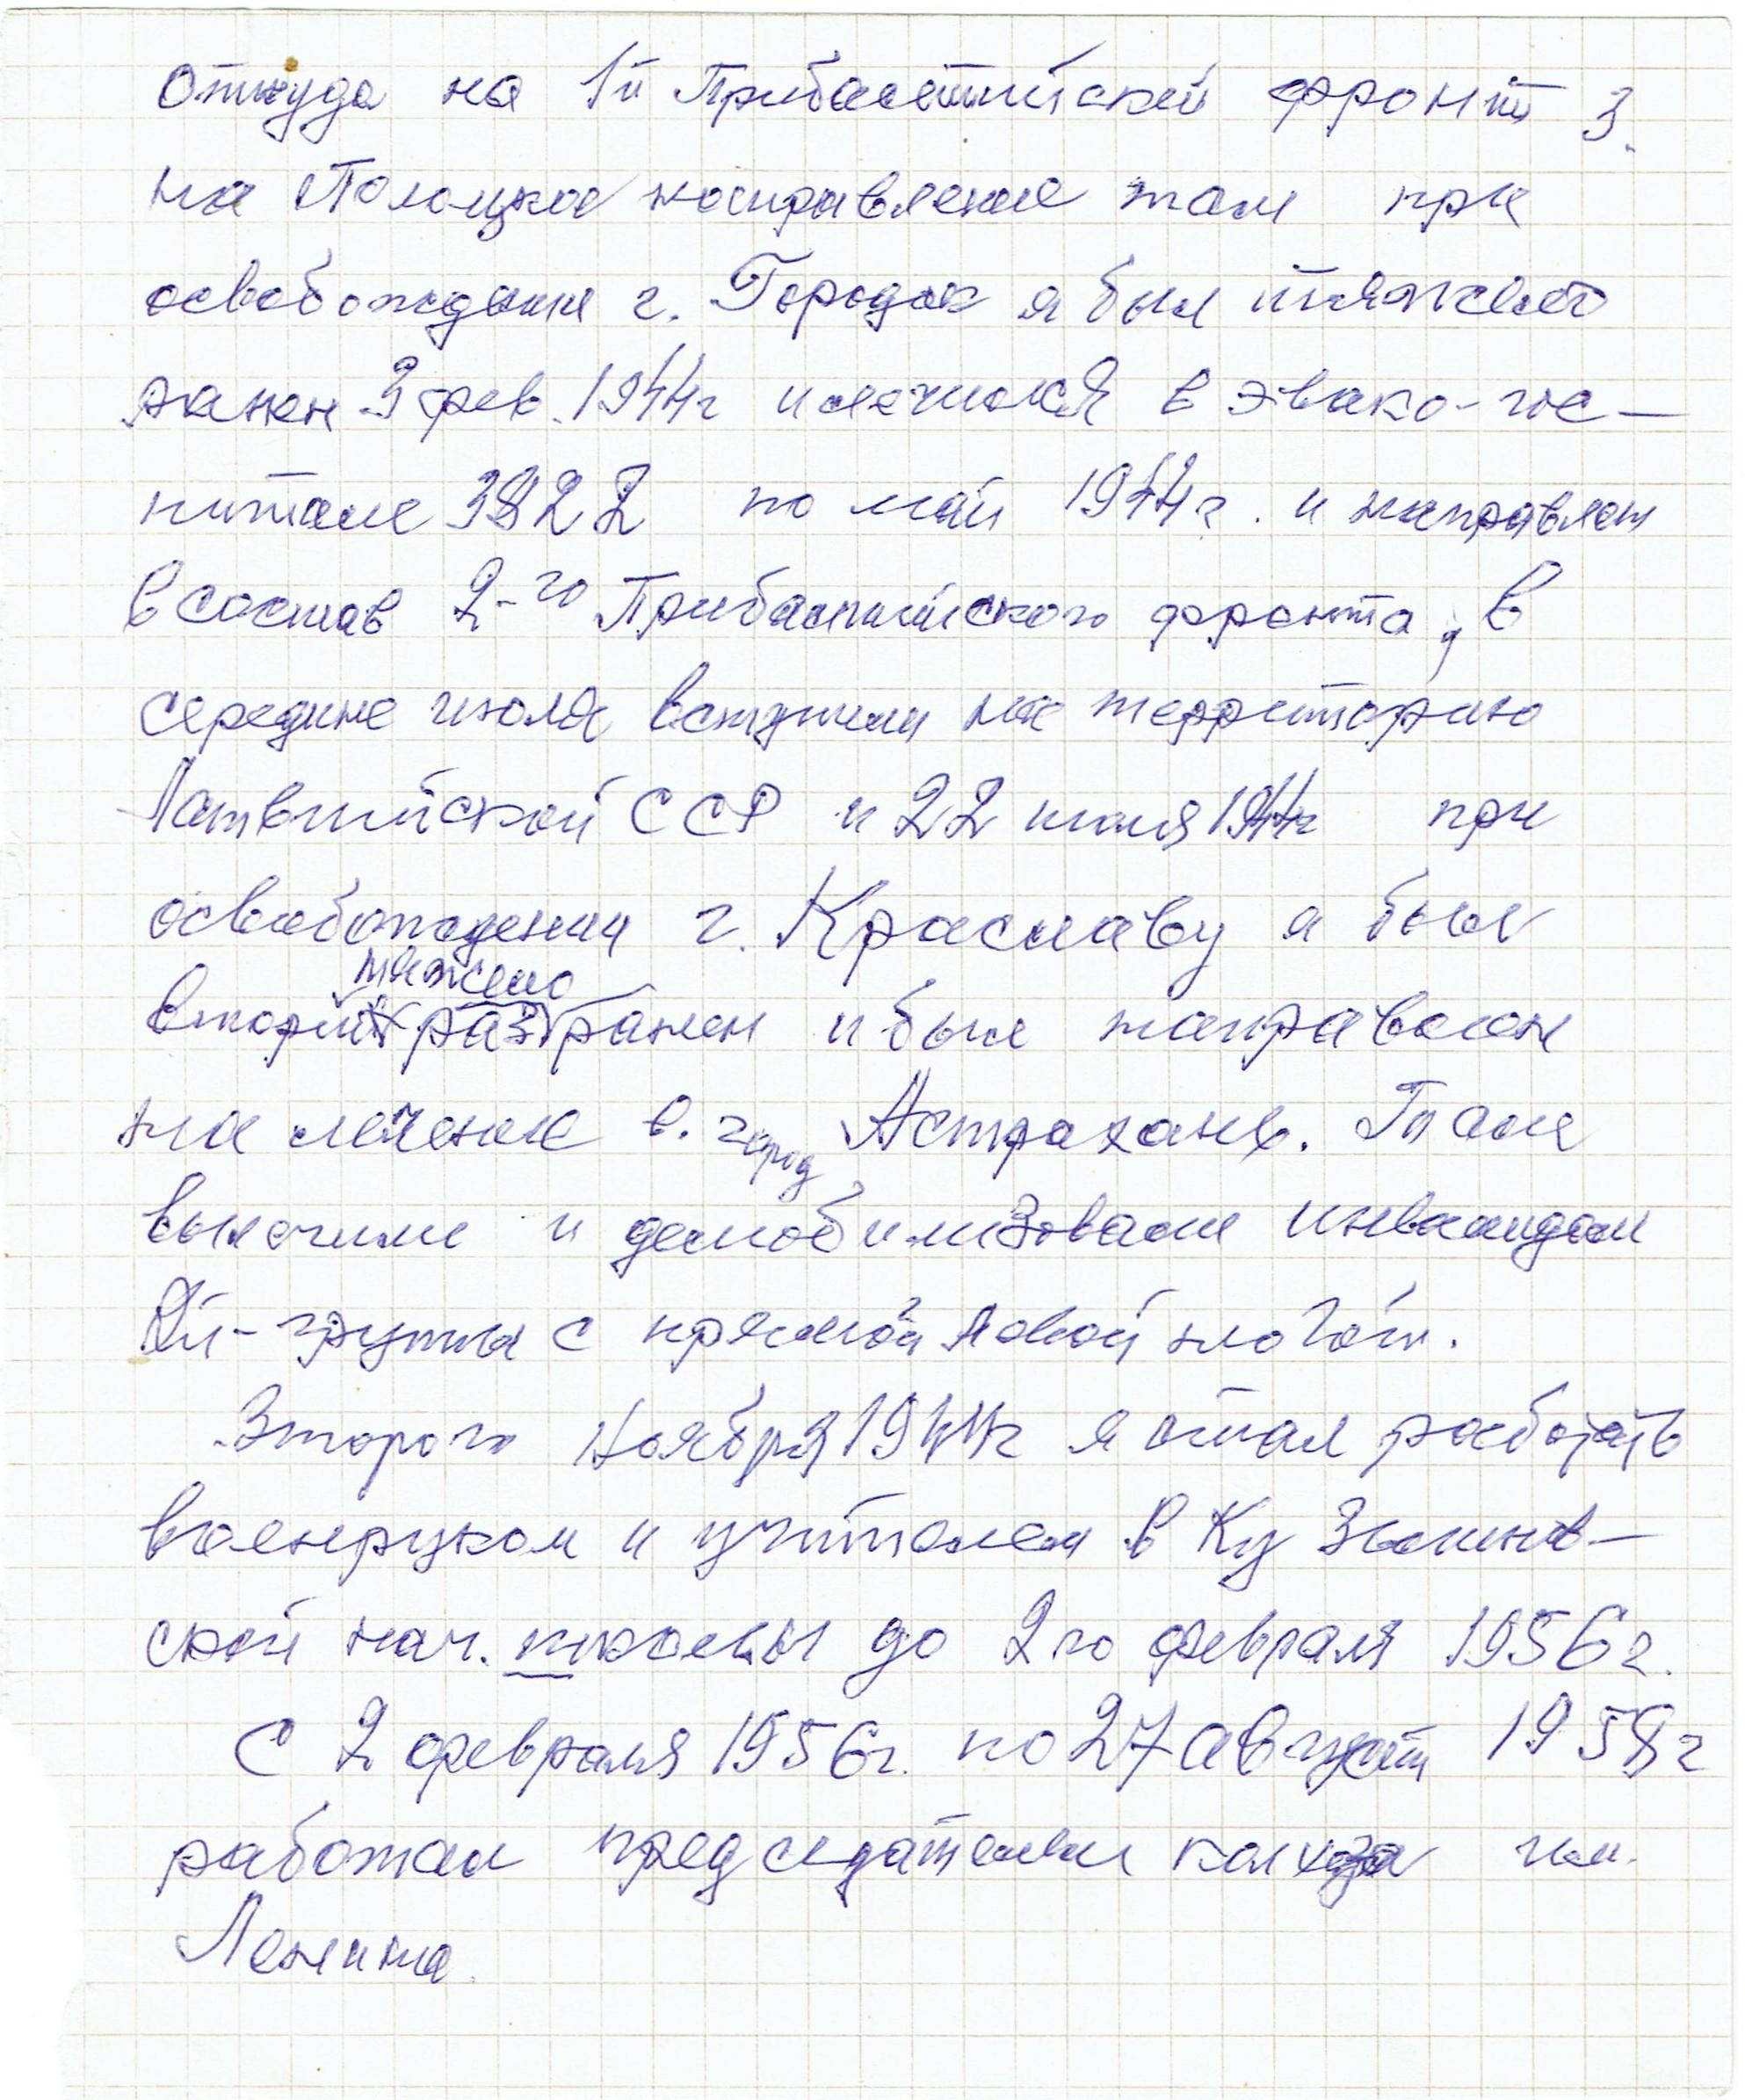 Откуда на 1й Прибалтийский фронт 3.
на Полоцкое направление там при
освобождении г. Городок я был тяжело
ранен 3 фев. 1944г и лечился в эвако-гос-
питале 3822 по май 1944г. и направлен
в состав 2-го Прибалтийского фронта, в
середине июля вступили на территорию
Латвийской ССР и 22 июля 1944г при
освобождении г. Краславу я был
тяжело
второй раз ранен и был направлен
на лечение в. город Астрахань. Там
вылечили и демобилизовали инвалидом
й-группы с прямой левой ногой.
Второго ноября 1944г я стал работать
военруком и учителем в Кузькинов-
ской нач. школы до 2го февраля 1956г.
С 2 февраля 1956г. по 27 август 1958г
работал председателем колхоза им.
Ленина.